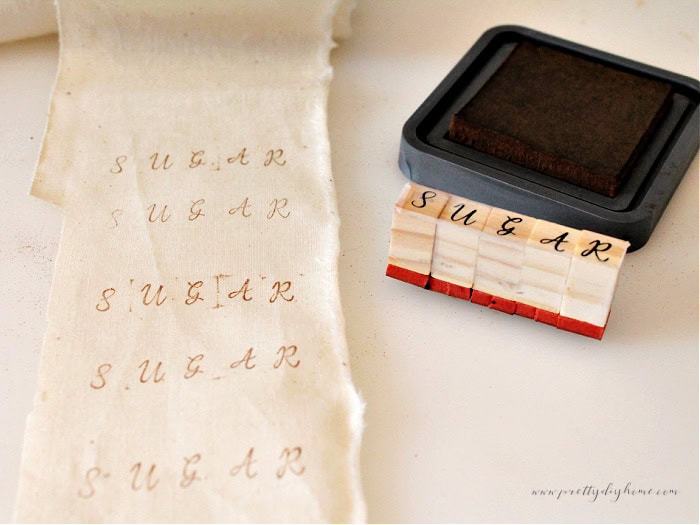 S U G A R
S U G A R
S U G A R
S U G A R
S U G A R
S U G A R
www.prettydiyhome.com